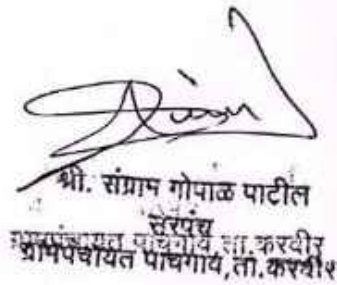 श्री. संग्राम गोपाळ पाटील
सरपंच
ग्रामपंचायत पाचगाव, ता. करवीर
ग्रामपंचायत पाचगाव, ता. करवीर